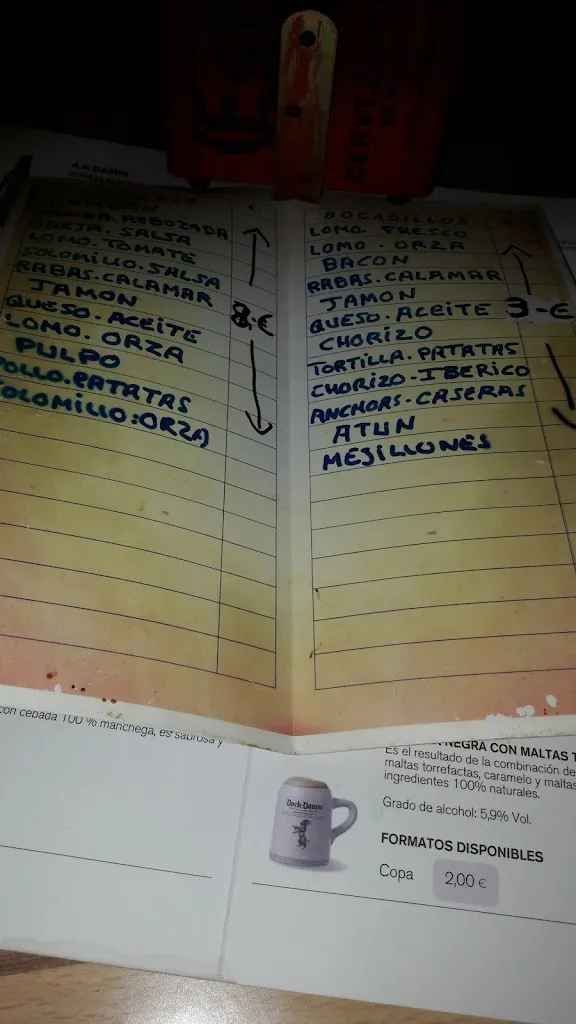 A.K.DAMM
GAMBA.REBOZADA
OREJA.SALSA
LOMO.TOMATE
SOLOMILLO.SALSA
RABAS.CALAMAR
JAMON
QUESO.ACEITE
LOMO.ORZA
PULPO
POLLO.PATATAS
SOLOMILLO.ORZA
8-€
BOCADILLOS
LOMO.FRESCO
LOMO.ORZA
BACON
RABAS.CALAMAR
JAMON
QUESO.ACEITE
CHORIZO
TORTILLA.PATATAS
CHORIZO-IBERICO
ANCHOAS.CASERAS
ATUN
MEJILLONES
3-€
con cebada 100 % manchega, es sabrosa y
NEGRA CON MALTAS
Es el resultado de la combinación de
maltas torrefactas, caramelo y maltas
ingredientes 100% naturales.
Grado de alcohol: 5,9% Vol.
Bock-Damm
FORMATOS DISPONIBLES
Copa 2,00 €